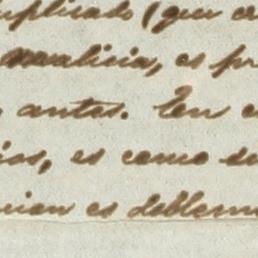 uplicado (que
malicia, es
antes. En
ios, es como
es doblem